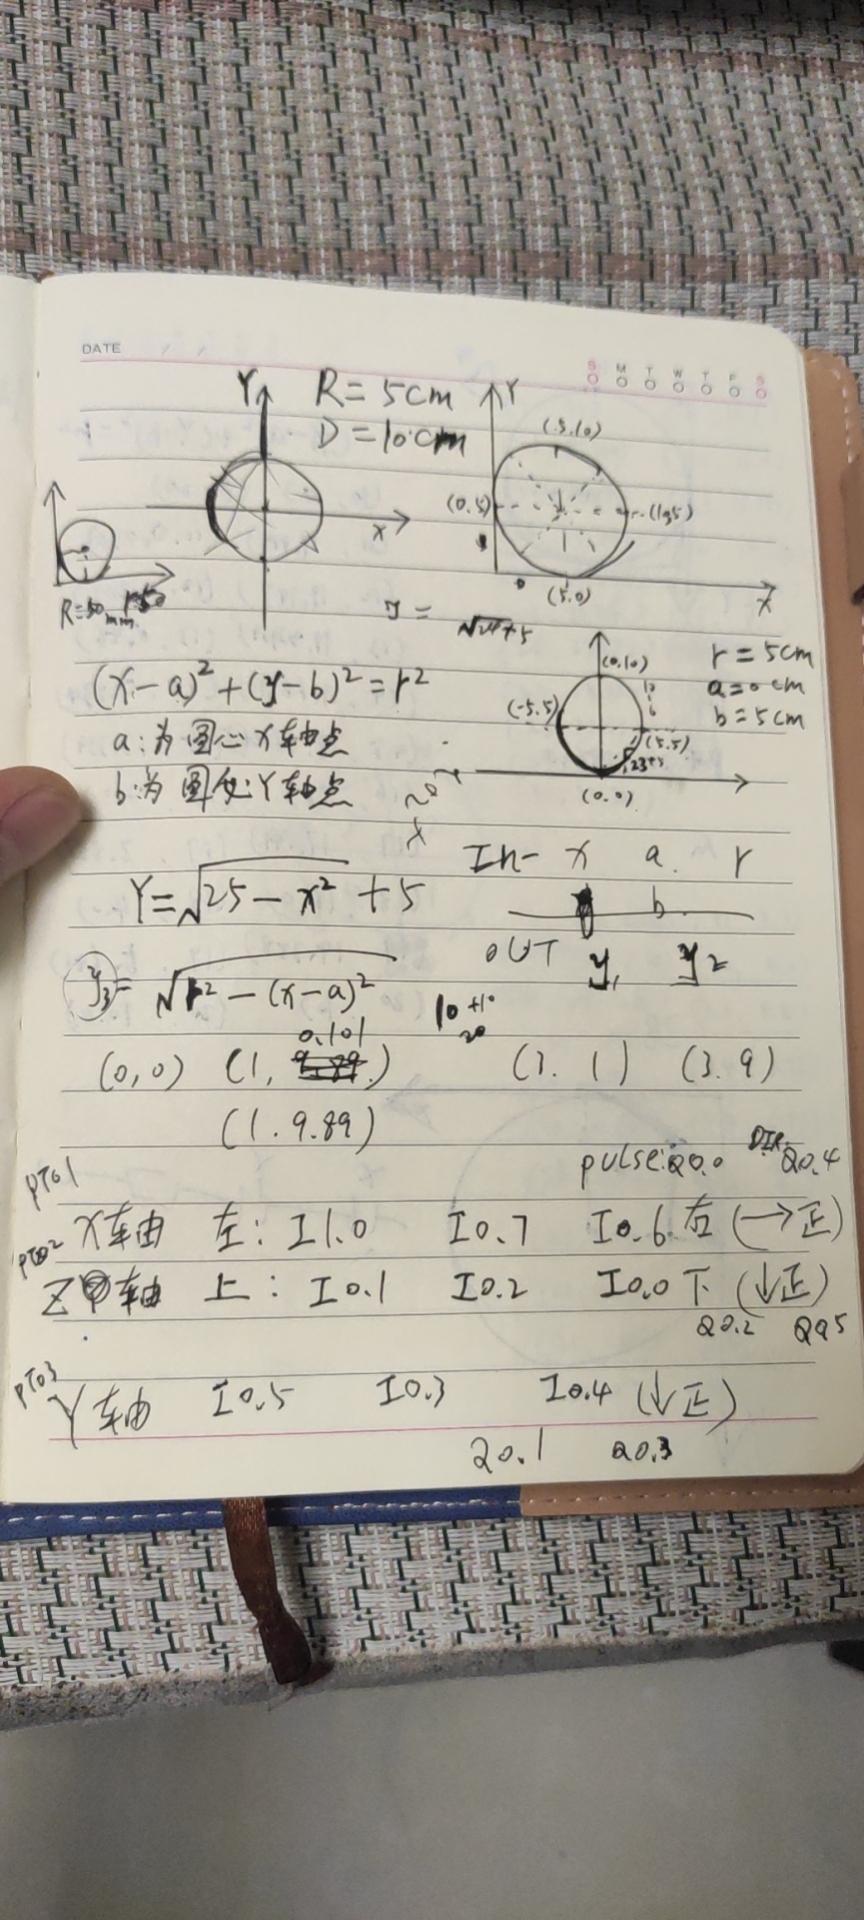 DATE
S M T W T F S
Y R = 5cm Y
D = 10cm (5.10)
(0.5)
x
R=50mm
(5.0) x
y =
(0.10) r = 5cm
(x-a)²+(y-b)²=r² a=0cm
(-5.5) b=5cm
a:为圆心X轴点 (5.5)
b:为圆心Y轴点
(0.0)
In- x a. r
Y=√25-x² + 5 b
OUT y₁ y₂
y₃= √r²-(x-a)²
10 +10
20
0.101
(0,0) (1, ) (3. 1) (3. 9)
(1. 9.89)
pulse:Q0.0 DIR. Q0.4
PTO1
X轴 左: I1.0 I0.7 I0.6 右 (→正)
PTO2
Z轴 上: I0.1 I0.2 I0.0 下 (↓正)
Q0.2 Q0.5
PTO3
Y轴 I0.5 I0.3 I0.4 (↓正)
Q0.1 Q0.3